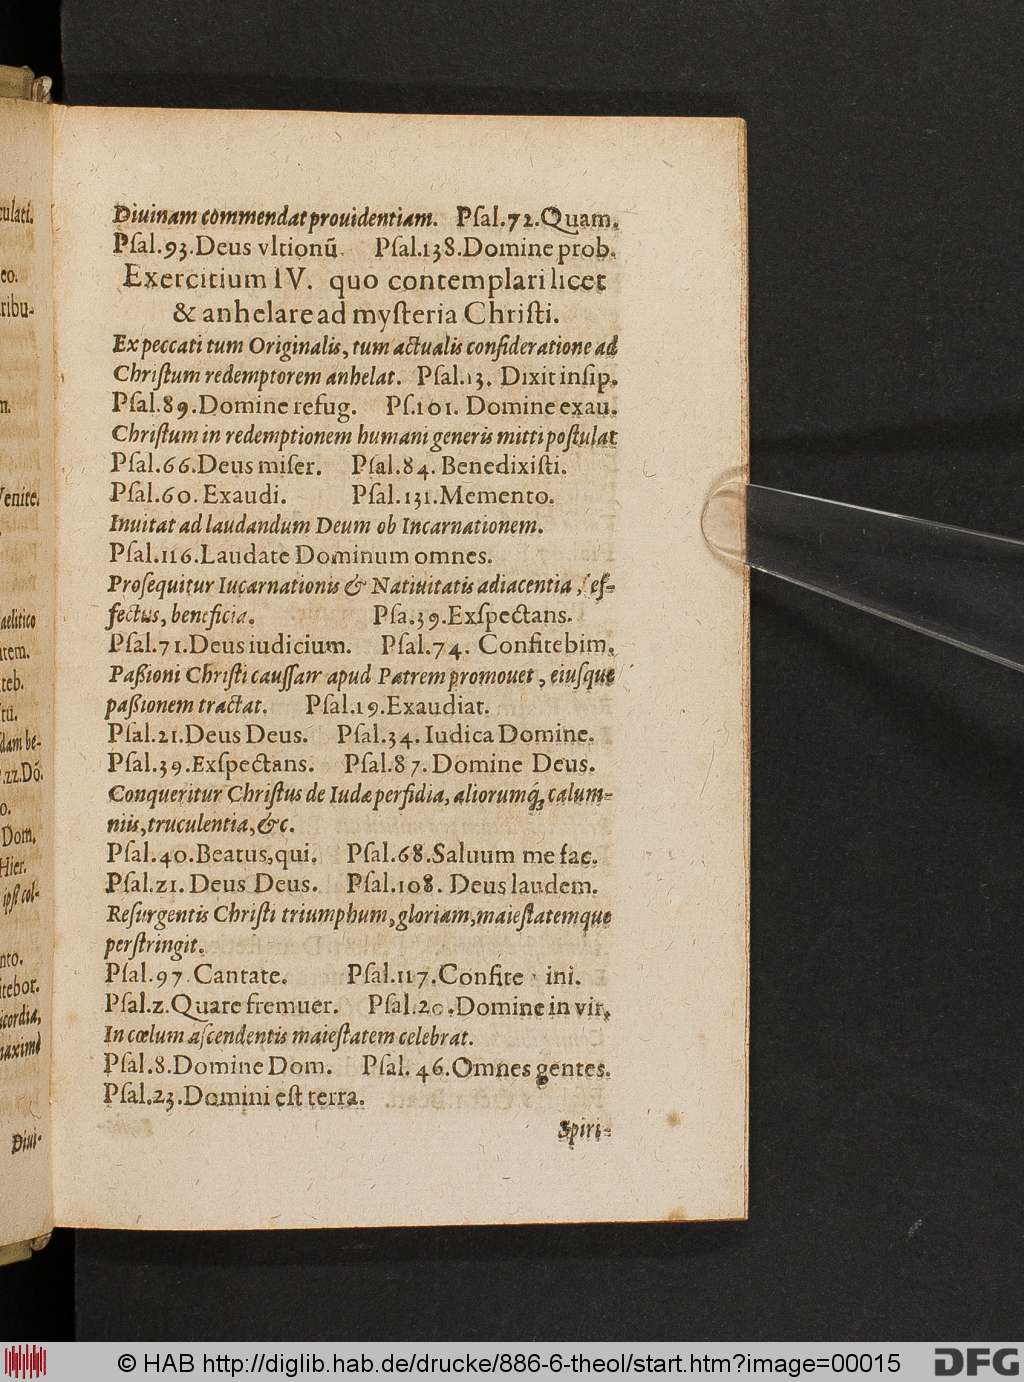 Diuinam commendat prouidentiam. Pſal.72.Quam.
Pſal.93.Deus vltionū. Pſal.138.Domine prob.
Exercitium IV. quo contemplari licet
& anhelare ad myſteria Chriſti.
Ex peccati tum Originalis, tum actualis conſideratione ad
Chriſtum redemptorem anhelat. Pſal.13. Dixit inſip.
Pſal.89.Domine refug. Pſ.101. Domine exau.
Chriſtum in redemptionem humani generis mitti poſtulat
Pſal.66.Deus miſer. Pſal.84. Benedixiſti.
Pſal.60. Exaudi. Pſal.131.Memento.
Inuitat ad laudandum Deum ob Incarnationem.
Pſal.116.Laudate Dominum omnes.
Proſequitur Iucarnationis & Natiuitatis adiacentia, eſ-
fectus, beneficia. Pſa.39.Exſpectans.
Pſal.71.Deus iudicium. Pſal.74. Confitebim.
Paßioni Chriſti cauſſam apud Patrem promouet, eiuſque
paßionem tractat. Pſal.19.Exaudiat.
Pſal.21.Deus Deus. Pſal.34. Iudica Domine.
Pſal.39.Exſpectans. Pſal.87.Domine Deus.
Conqueritur Chriſtus de Iudæ perfidia, aliorumq́; calum-
niis, truculentia, &c.
Pſal.40.Beatus, qui. Pſal.68.Saluum me fac.
Pſal.21. Deus Deus. Pſal.108. Deus laudem.
Reſurgentis Chriſti triumphum, gloriam, maieſtatemque
perſtringit.
Pſal.97 Cantate. Pſal.117.Confite ini.
Pſal.2.Quare fremuer. Pſal.20.Domine in vir.
In cœlum aſcendentis maieſtatem celebrat.
Pſal.8.Domine Dom. Pſal.46.Omnes gentes.
Pſal.23.Domini eſt terra.
Spiri-
© HAB http://diglib.hab.de/drucke/886-6-theol/start.htm?image=00015
DFG